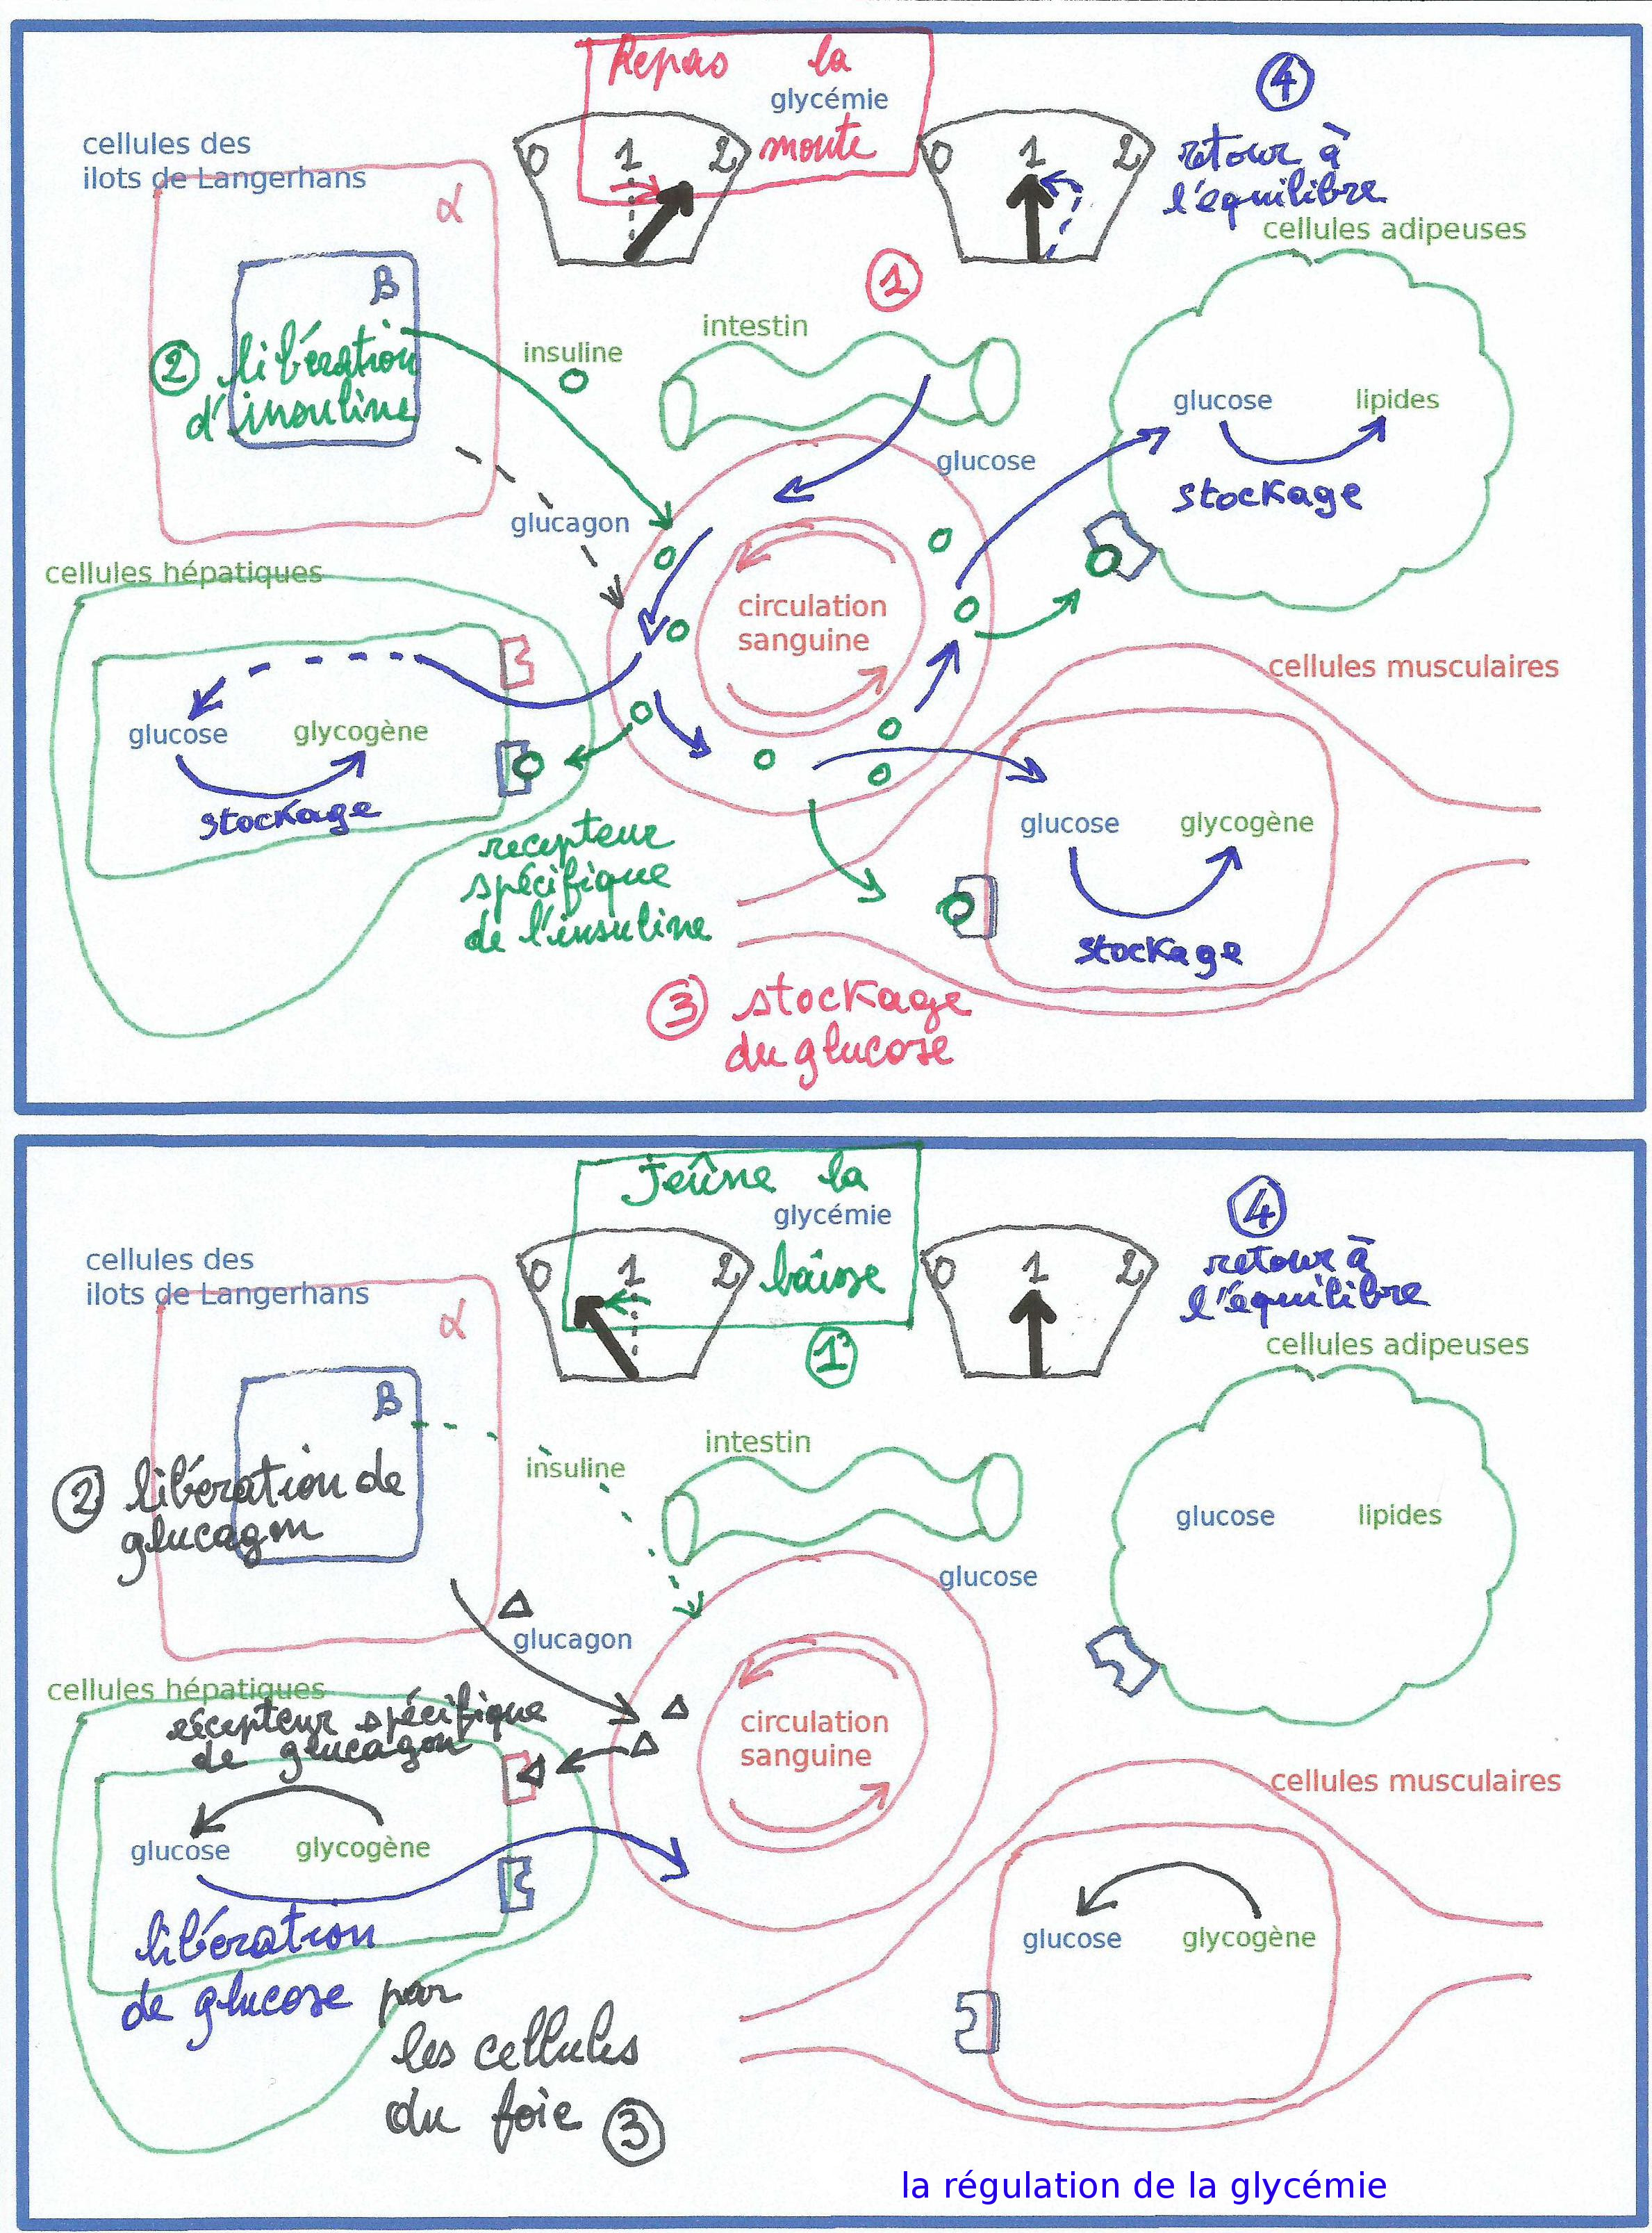 Repas la
glycémie
monte
0 1 2
0 1 2
4
retour à
l'équilibre
cellules des
ilots de Langerhans
α
B
2 libération
d'insuline
insuline
1
intestin
glucose
glucagon
cellules adipeuses
glucose lipides
stockage
cellules hépatiques
glucose glycogène
stockage
circulation
sanguine
cellules musculaires
glucose glycogène
stockage
recepteur
spécifique
de l'insuline
3 stockage
du glucose
Jeûne la
glycémie
baisse
0 1 2
0 1 2
1
4
retour à
l'équilibre
cellules des
ilots de Langerhans
α
B
2 libération de
glucagon
insuline
intestin
glucose
glucagon
cellules adipeuses
glucose lipides
cellules hépatiques
récepteur spécifique
de glucagon
glucose glycogène
circulation
sanguine
cellules musculaires
glucose glycogène
libération
de glucose par
les cellules
du foie 3
la régulation de la glycémie